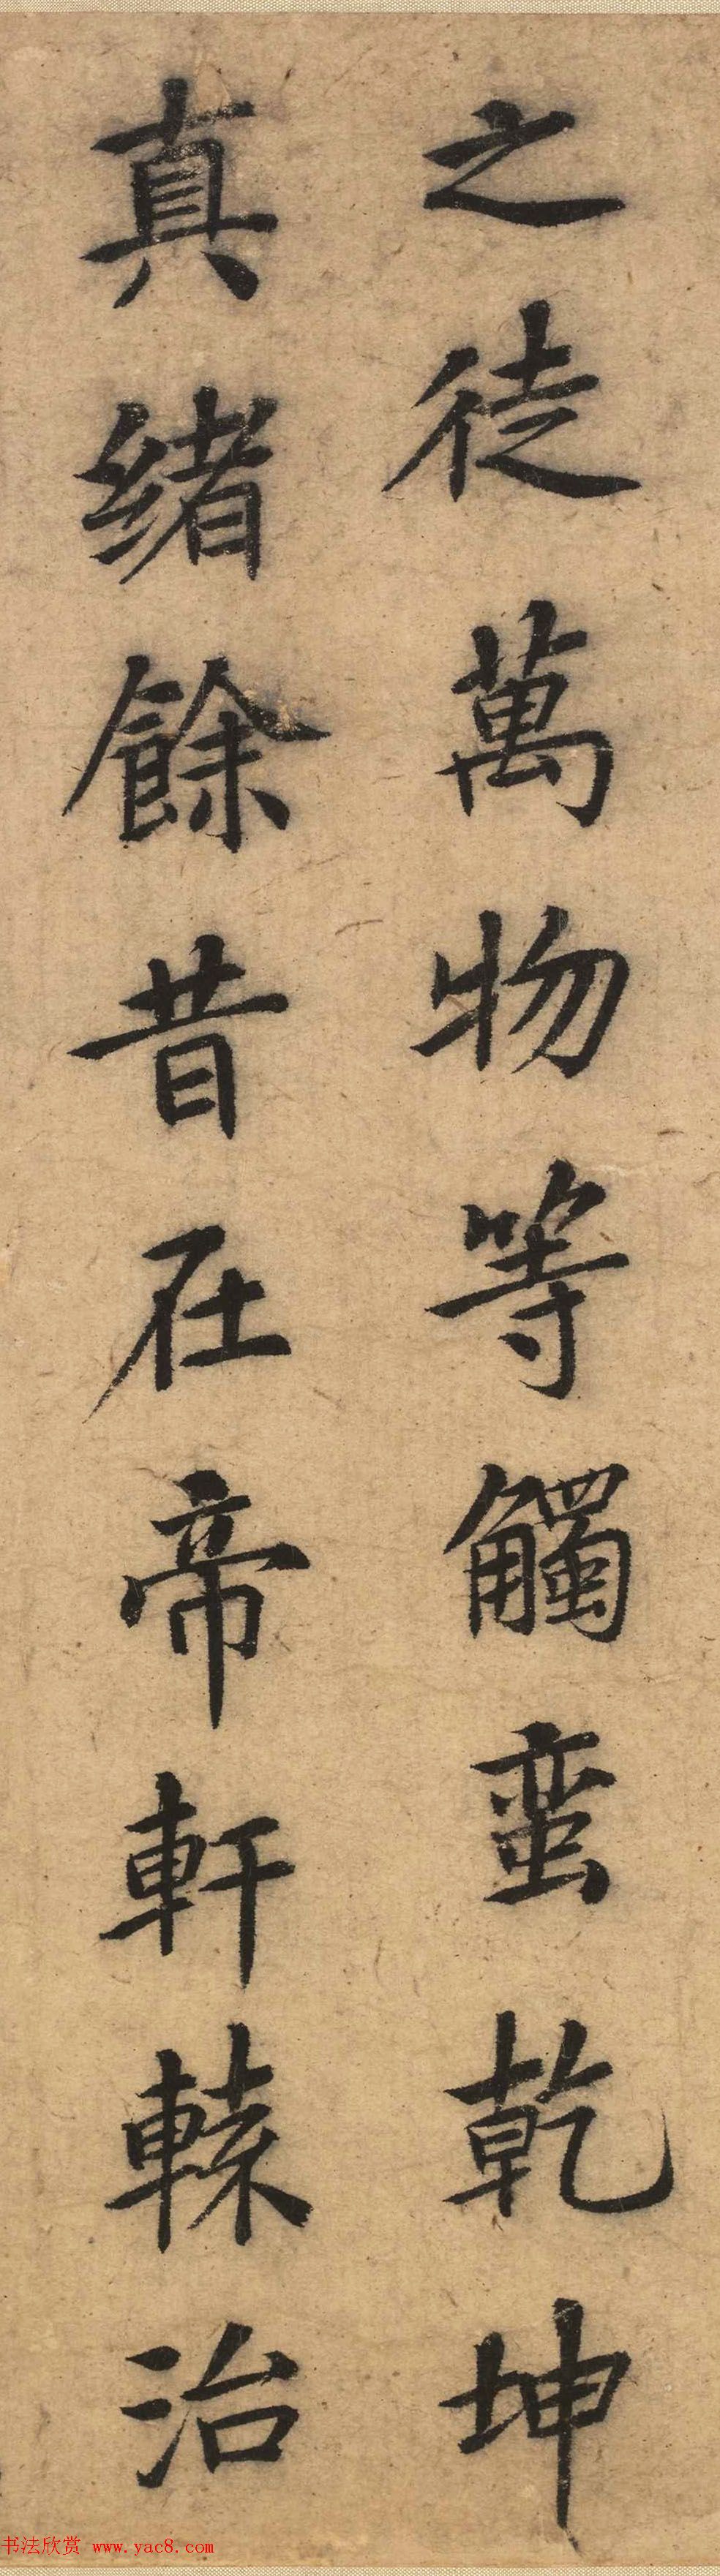 之徒萬物等觸蛮乾坤
真緒餘昔在帝軒轅治
书法欣赏 www.yac8.com